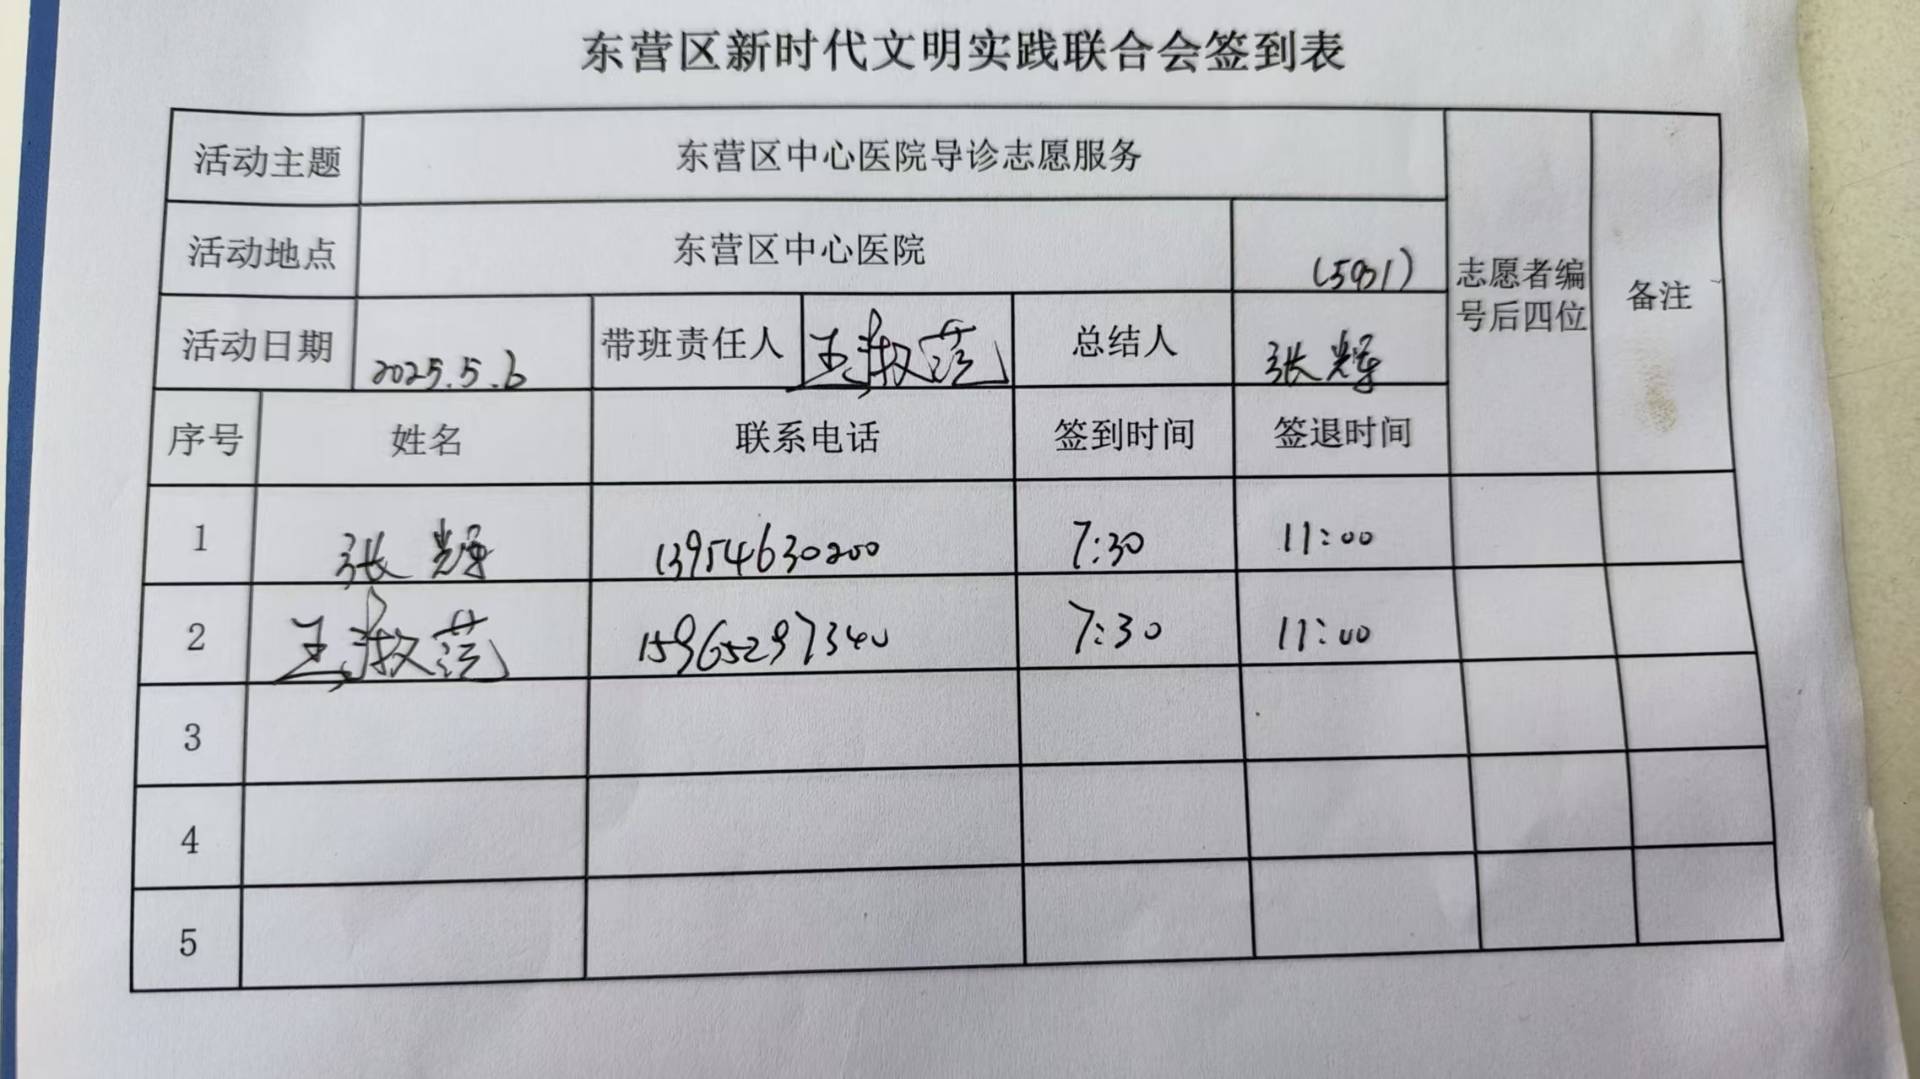 东营区新时代文明实践联合会签到表
活动主题 东营区中心医院导诊志愿服务
活动地点 东营区中心医院 (5931)
志愿者编号后四位 备注
活动日期 2025.5.6 带班责任人 王淑范 总结人 张辉
序号 姓名 联系电话 签到时间 签退时间
1 张辉 13954630200 7:30 11:00
2 王淑范 15965297340 7:30 11:00
3
4
5